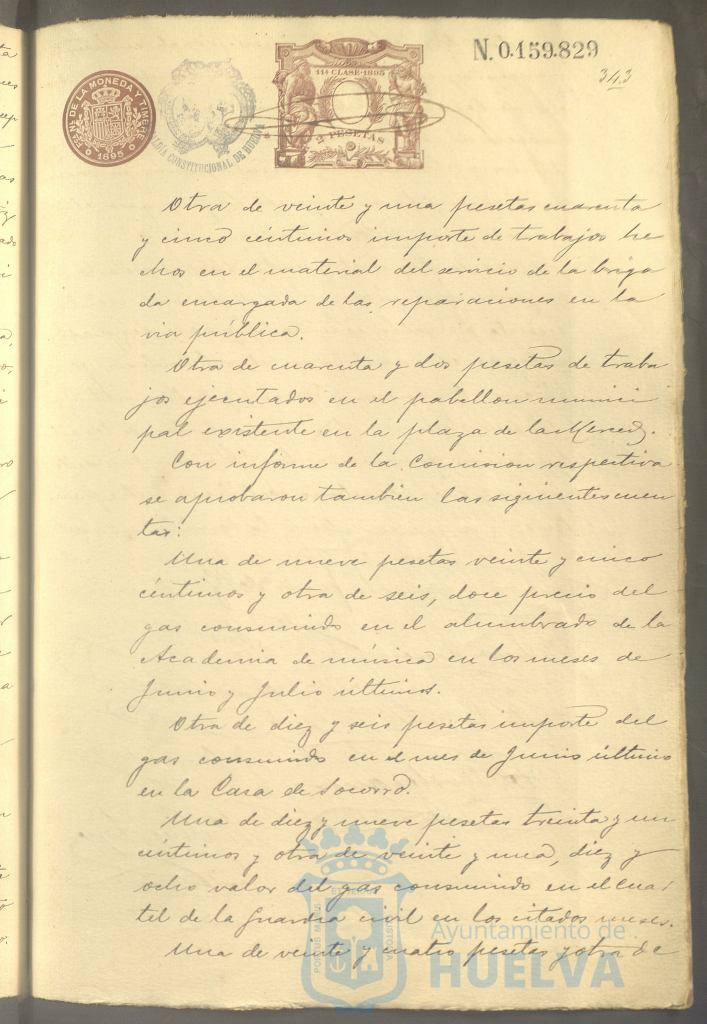 N. 0.159.829
343
11ª CLASE-1895
2 PESETAS
FCA. NL. DE LA MONEDA Y TIMBRE
1895
CONSTITUCIONAL DE HUELVA
Otra de veinte y una pesetas cuarenta
y cinco céntimos importe de trabajos he
chos en el material del servicio de la briga
da encargada de las reparaciones en la
via pública.
Otra de cuarenta y dos pesetas de traba
jos ejecutados en el pabellon munici
pal existente en la plaza de la Merced.
Con informe de la Comision respectiva
se aprobaron tambien las siguientes cuen
tas:
Una de nueve pesetas veinte y cinco
céntimos y otra de seis, doce precio del
gas consumido en el alumbrado de la
Academia de música en los meses de
Junio y Julio últimos.
Otra de diez y seis pesetas importe del
gas consumido en el mes de Junio último
en la Casa de Socorro.
Una de diez y nueve pesetas treinta y un
céntimos y otra de veinte y una, diez y
ocho valor del gas consumido en el cuar
tel de la Guardia civil en los citados meses.
Una de veinte y cuatro pesetas y otra de
Ayuntamiento de
HUELVA